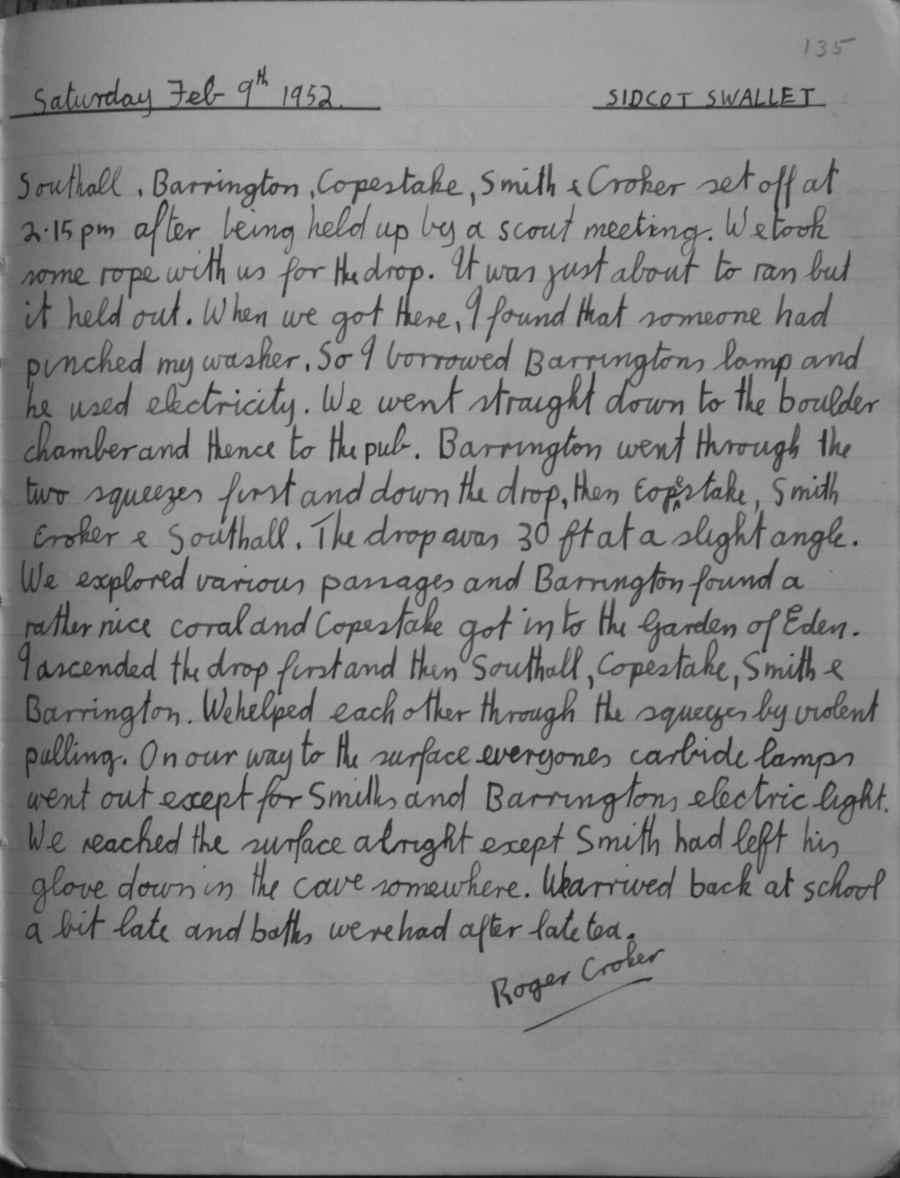 135
Saturday Feb 9th 1952. SIDCOT SWALLET
Southall, Barrington, Copestake, Smith & Croker set off at
2.15 pm after being held up by a scout meeting. We took
some rope with us for the drop. It was just about to ran but
it held out. When we got there, I found that someone had
pinched my washer. So I borrowed Barringtons lamp and
he used electricity. We went straight down to the boulder
chamber and thence to the pub. Barrington went through the
two squeezes first and down the drop, then Copestake, Smith
Croker & Southall. The drop was 30 ft at a slight angle.
We explored various passages and Barrington found a
rather nice coral and Copestake got in to the Garden of Eden.
I ascended the drop first and then Southall, Copestake, Smith &
Barrington. We helped each other through the squeezes by violent
pulling. On our way to the surface everyones carbide lamps
went out except for Smiths and Barringtons electric light.
We reached the surface alright exept Smith had left his
glove down in the cave somewhere. We arrived back at school
a bit late and baths were had after late tea.
Roger Croker